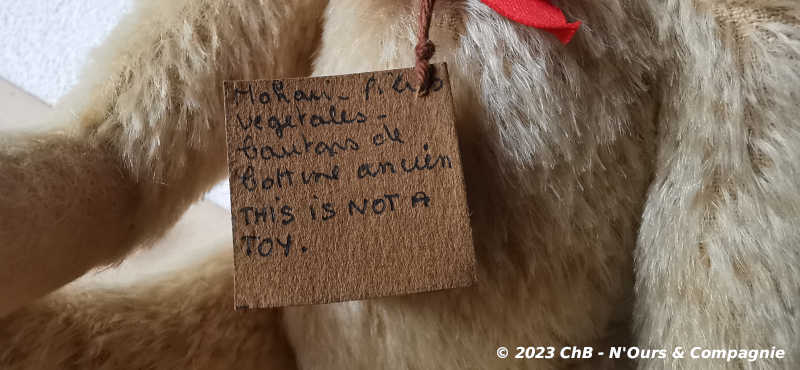 Mohair - fibres
végétales -
boutons de
bottine ancien
THIS IS NOT A
TOY.
© 2023 ChB - N'Ours & Compagnie